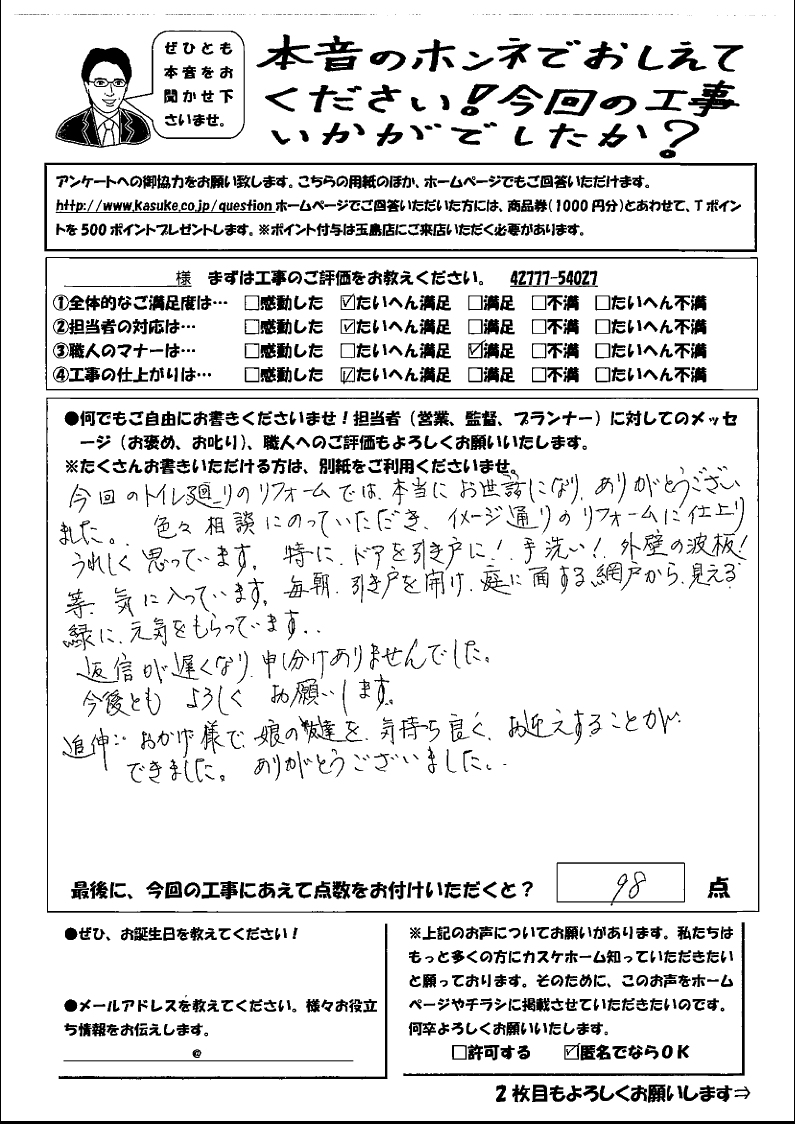 ぜひとも
本音をお
聞かせ下
さいませ。
本音のホンネでおしえて
ください!今回の工事
いかがでしたか?
アンケートへの御協力をお願い致します。こちらの用紙のほか、ホームページでもご回答いただけます。
http://www.kasuke.co.jp/question ホームページでご回答いただいた方には、商品券(1000円分)とあわせて、Tポイン
トを500ポイントプレゼントします。※ポイント付与は玉島店にご来店いただく必要があります。
様 まずは工事のご評価をお教えください。 42777-54027
①全体的なご満足度は… □感動した ☑たいへん満足 □満足 □不満 □たいへん不満
②担当者の対応は… □感動した ☑たいへん満足 □満足 □不満 □たいへん不満
③職人のマナーは… □感動した □たいへん満足 ☑満足 □不満 □たいへん不満
④工事の仕上がりは… □感動した ☑たいへん満足 □満足 □不満 □たいへん不満
●何でもご自由にお書きくださいませ!担当者(営業、監督、プランナー)に対してのメッセ
ージ(お褒め、お叱り)、職人へのご評価もよろしくお願いいたします。
※たくさんお書きいただける方は、別紙をご利用くださいませ。
今回のトイレ廻りのリフォームでは、本当にお世話になり、ありがとうござい
ました。色々相談にのっていただき、イメージ通りのリフォームに仕上り
うれしく思っています。特に、ドアを引き戸に!手洗い!外壁の波板!
等、気に入っています。毎朝、引き戸を開け、庭に面する網戸から、見える
緑に、元気をもらっています。
返信が遅くなり、申し分けありませんでした。
今後とも よろしく お願いします。
追伸:おかげ様で、娘の友達を、気持ち良く、お迎えすることが
できました。ありがとうございました。
最後に、今回の工事にあえて点数をお付けいただくと? 98 点
●ぜひ、お誕生日を教えてください!
●メールアドレスを教えてください。様々お役立
ち情報をお伝えします。
@
※上記のお声についてお願いがあります。私たちは
もっと多くの方にカスケホーム知っていただきたい
と願っております。そのために、このお声をホーム
ページやチラシに掲載させていただきたいのです。
何卒よろしくお願いいたします。
□許可する ☑匿名でならOK
2枚目もよろしくお願いします⇒